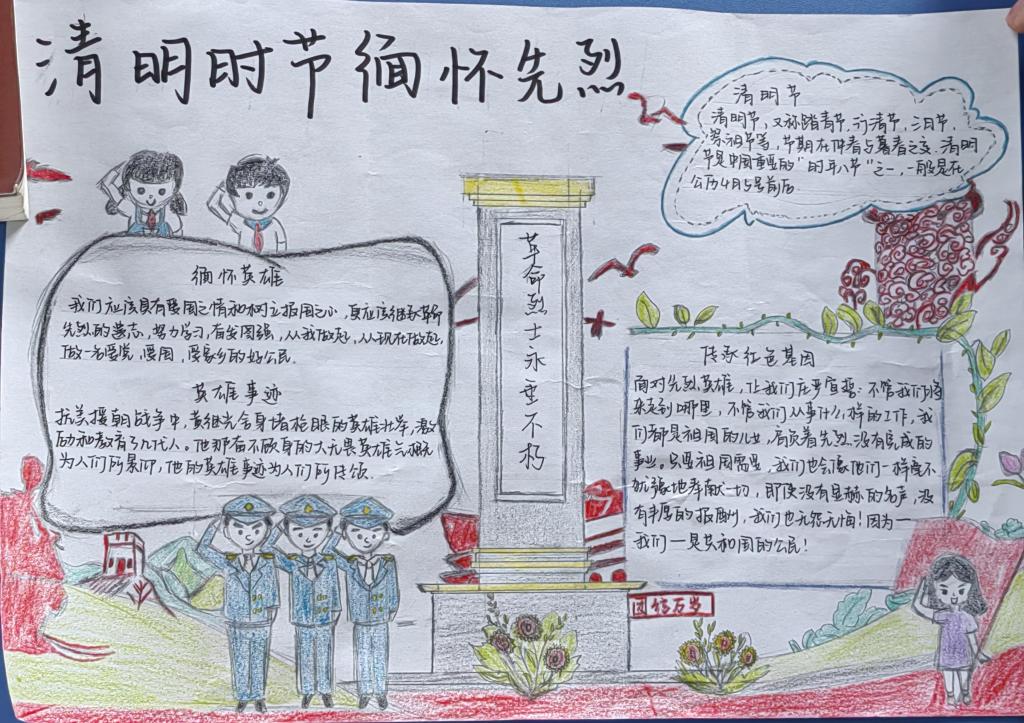 清明时节缅怀先烈
清明节
清明节，又称踏青节、行清节、三月节、
祭祖节等，节期在仲春与暮春之交。清明
节是中国重要的"时年八节"之一，一般是在
公历4月5号前后.
缅怀英雄
我们应该具有爱国之情和树立报国之心，更应该继承革命
先烈的遗志，努力学习，奋发图强，从我做起，从现在做起，
做一名爱党，爱国，爱家乡的好公民.
英雄事迹
抗美援朝战争中，黄继光舍身堵枪眼的英雄壮举，激
励和教育了几代人。他那奋不顾身的大无畏英雄气概
为人们所景仰，他的英雄事迹为人们所传颂.
革命烈士永垂不朽
传承红色基因
面对先烈英雄，让我们庄严宣誓：不管我们将
来走到哪里，不管我们从事什么样的工作，我
们都是祖国的儿女，肩负着先烈没有完成的
事业。只要祖国需要，我们也会像他们一样毫不
犹豫地奉献一切，即使没有显赫的名声，没
有丰厚的报酬，我们也无怨无悔！因为一
我们一是共和国的公民！
团结万岁